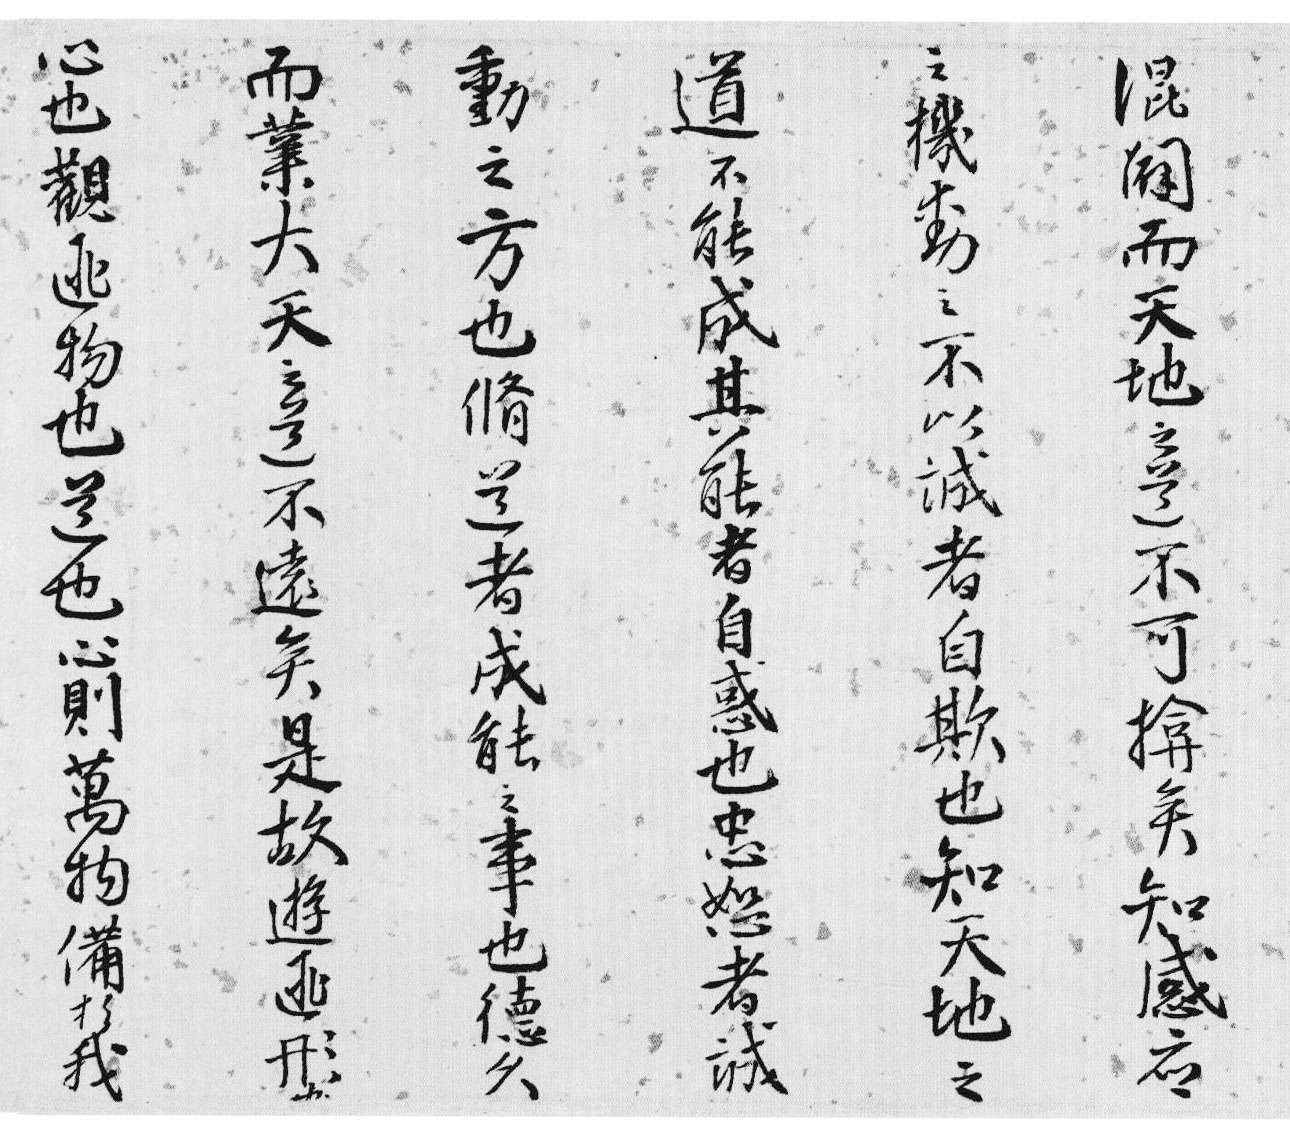 混闢而天地之道不可揜矣知感应
之機動之不以誠者自欺也知天地之
道不能成其能者自惑也忠恕者誠
動之方也脩道者成能之事也德久
而業大天之道不遠矣是故遊匪形也
心也觀匪物也道也心則萬物備於我